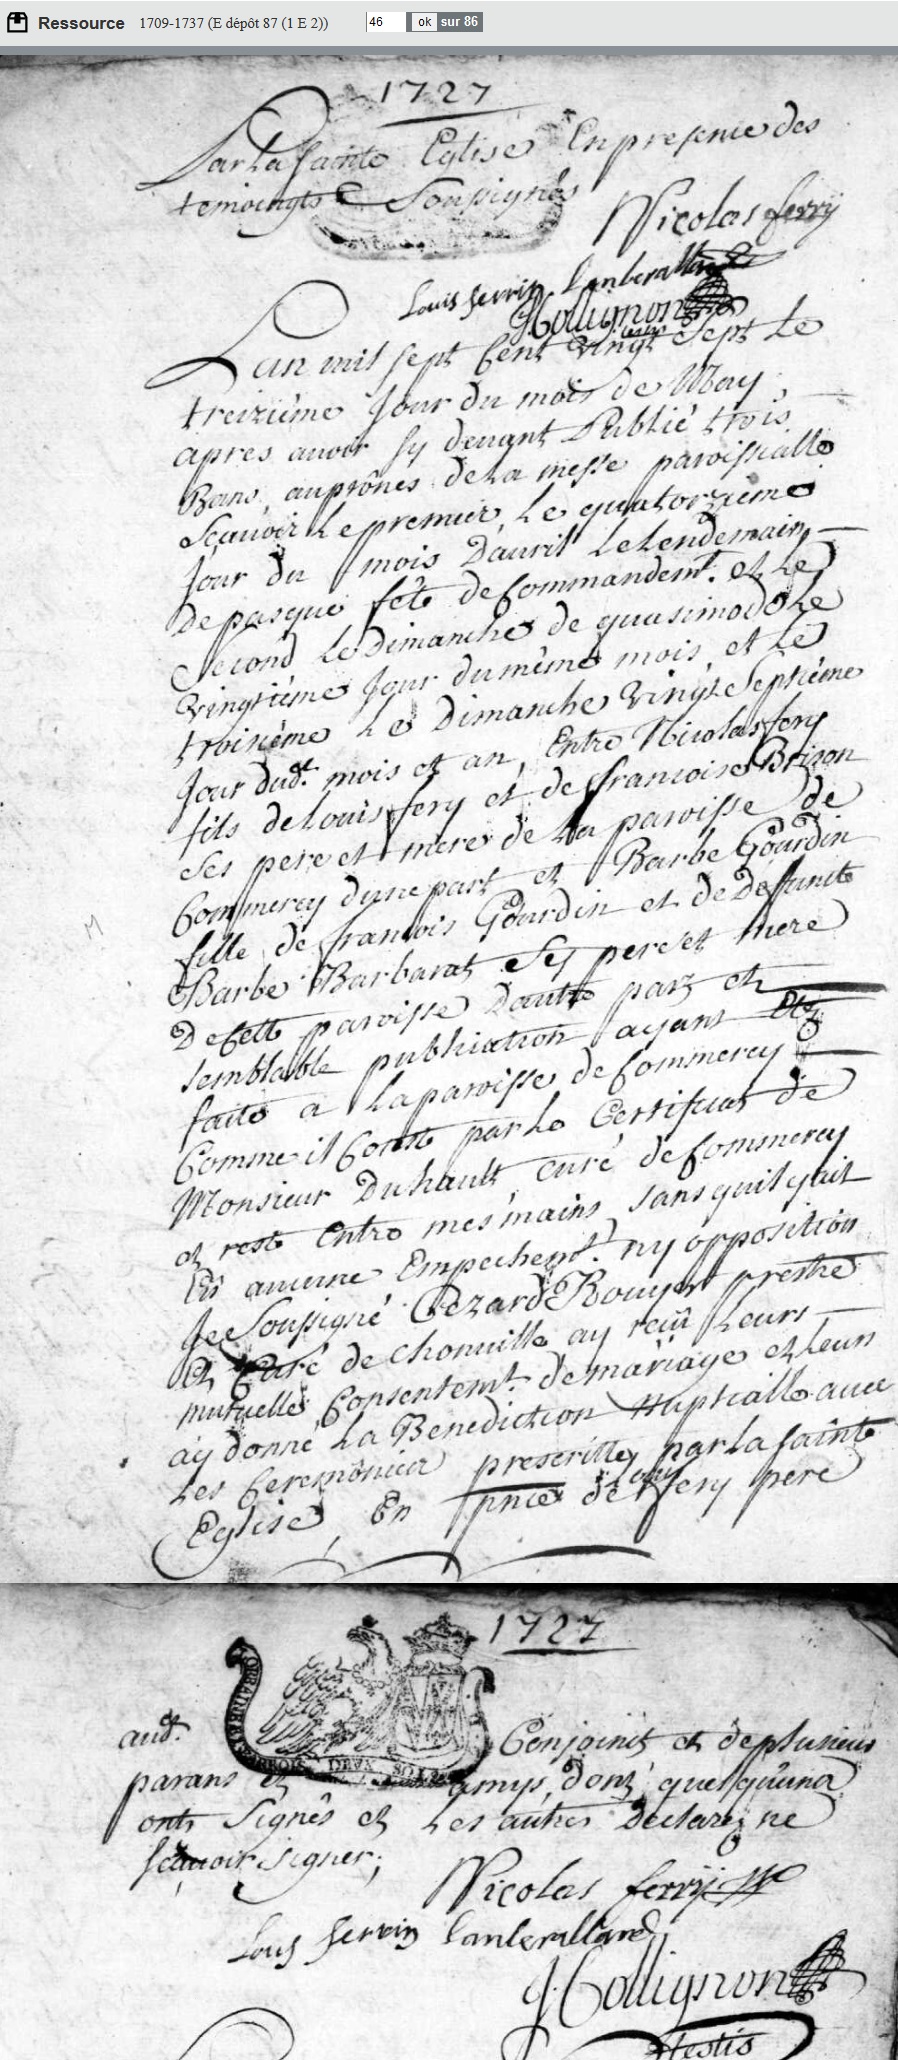 Ressource 1709-1737 (E dépôt 87 (1 E 2)) 46 ok sur 86
1727
Par La sainte Eglise En presence des
temoingts Soussignés
Nicolas ferry
Louis ferrin
J Collignon
testis
Lan mil sept Cent vingt Sept Le
treizième Jour du mois de May
apres avoir Cy devant Publié trois
Bans auprônes deLa messe paroissialle
Scavoir Le premier, Le quatorzieme
Jour du mois Dauril LeLendemain
De pasque fête deCommandemt. et Le
Second Le Dimanche de quasimodo Le
vingtième Jour du même mois, et Le
troisième Le Dimanche vingt Septième
Jour dudt. mois et an, Entre Nicolas fery
fils de Louis fery et de francoise Brison
Ses pere et mere de La paroisse de
Commercy dune part et Barbe Gourdin
fille de francois Gourdin et de Deffunte
Barbe Barbarat Ses pere et mere
De Cette paroisse Dautre part et
semblable publication ayant
faite a La paroisse de Commercy
Comme il Conste par Le Certificat de
Monsieur Duhault Curé de Commercy
et resté Entre mes mains sans quil y ait
Eû aucune Empechemt. ny opposition
Je Soussigné Cezard Rouyer prestre
Et Curé de Chonville ay reçû Leurs
mutuelles Consentemt. de mariage et Leur
ay donné La Benediction Nuptialle avec
Les Ceremonies prescrittes par La sainte
Eglise, En pnce de Louis fery pere
1727
audt. Conjoinct et de plusieur
parans et amys, dont quelquuna
ont Signés et Les autres Declarez ne
scavoir signer;
Nicolas ferrÿ
Louis ferrin
J. Collignon
testis